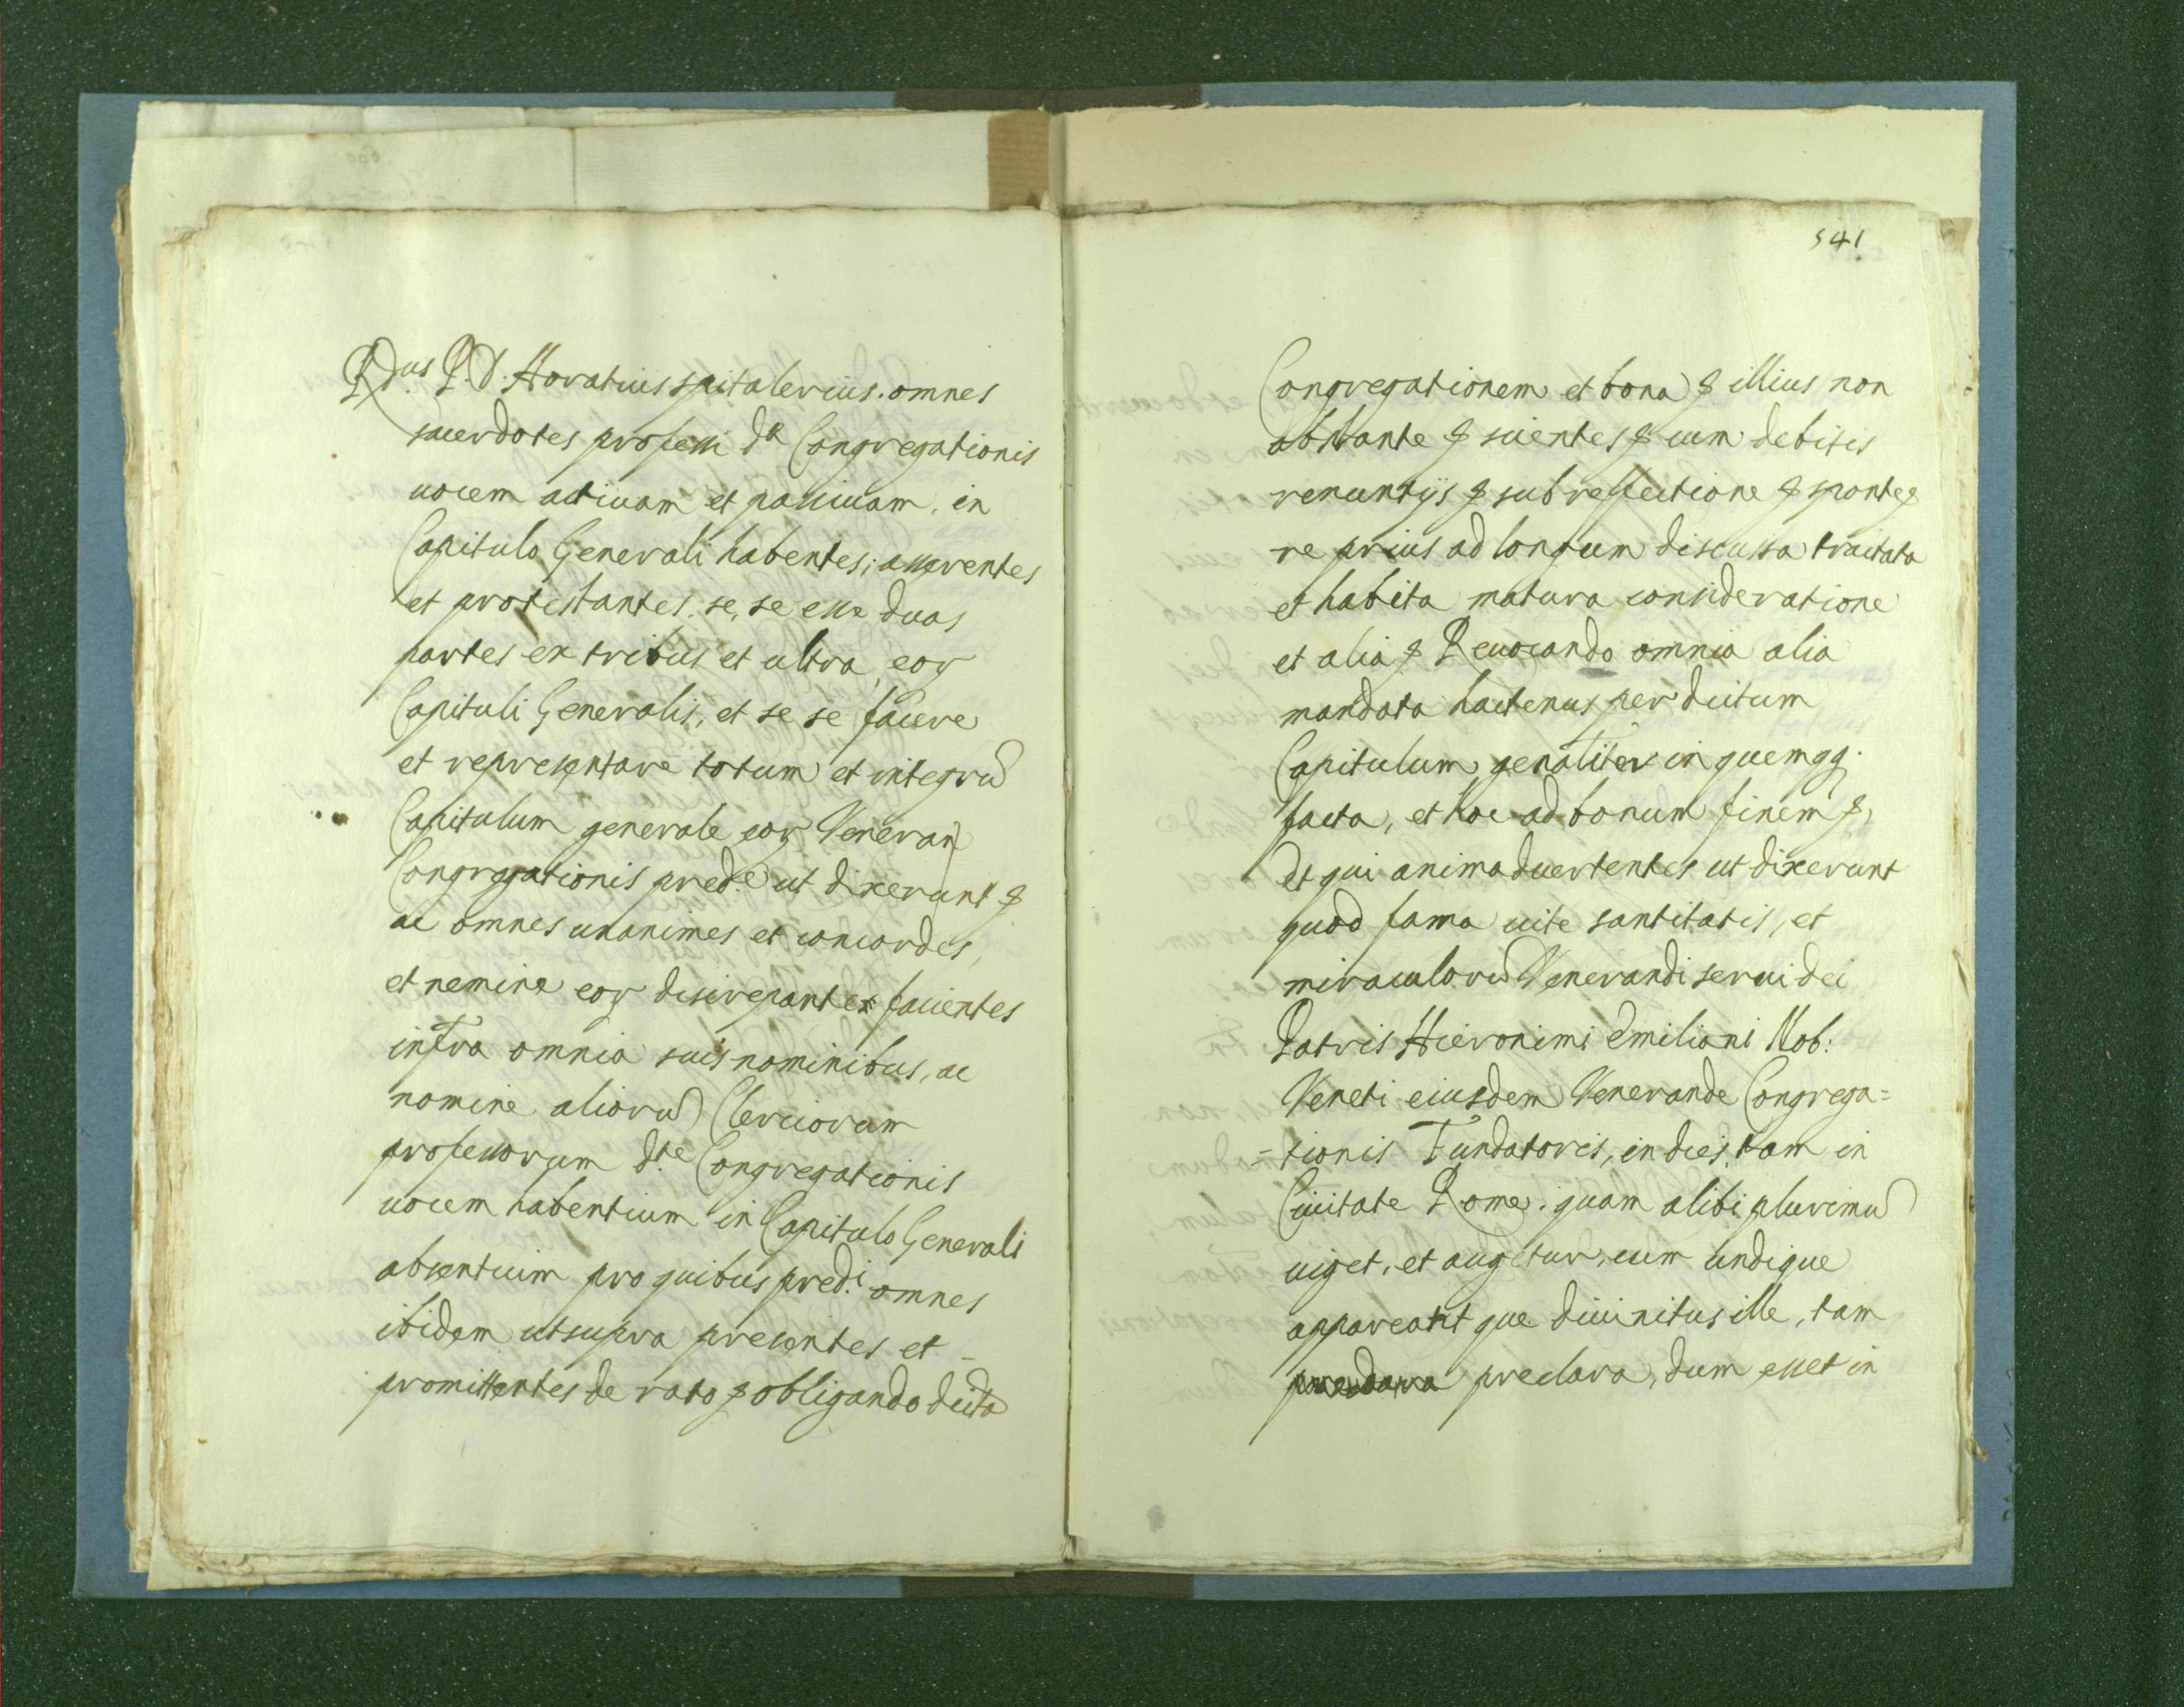 R.dus P. D. Horatius spitalerius. omnes
sacerdotes professi d.e Congregationis
uocem actiuam et passiuam, in
Capitulo Generali habentes; asserentes
et protestantes, se, se esse duas
partes ex tribus et ultra, eor
Capituli Generalis, et se se facere
et representare totum et integrũ
Capitulum generale eor Veneran
Congregationis pred.e ut dixerunt &
ac omnes unanimes et concordes,
et nemine eor discrepante facientes
infra omnia suis nominibus, ac
nomine aliorũ Clericorum
professorum d.te Congregationis
uocem habentium in Capitulo Generali
absentium pro quibus pred.i omnes
ibidem ut supra presentes et
promittentes de rato & obligando dicta
541
Congregationem et bona & illius non
obstante & scientes & cum debitis
renuntijs & sub reffectione & sponte &
re prius ad longum discussa tractata
et habita matura consideratione
et alia & Reuocando omnia alia
mandata hactenus per dictum
Capitulum genaliter in quemqq.
facta, et hoc ad bonum finem &,
Et qui animaduertentes ut dixerunt
quod fama uite santitatis, et
miraculorũ Venerandi serui dei
Patris Hieronimi Emiliani Nob:
Veneti eiusdem Venerande Congrega=
=tionis Fundatoris, in dies, tam in
Ciuitate Rome, quam alibi plurimũ
uiget, et augetur, cum undique
appareant que diuinitus ille, tam
preclara, dum esset in